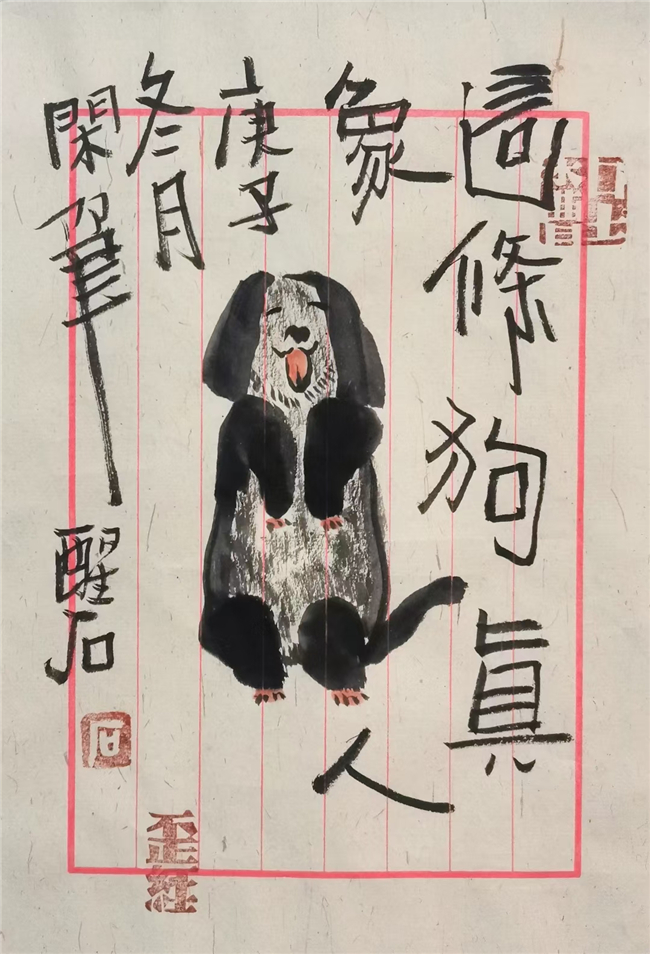 這條狗真
象人
庚子
冬月
閑筆 醒石
石